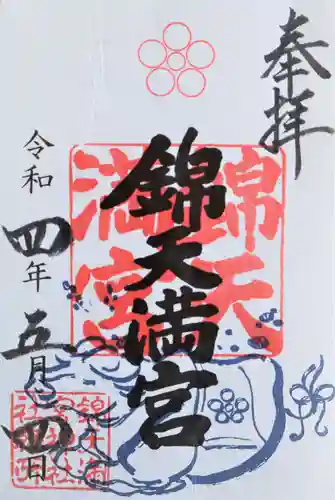 奉拝
錦天満宮
錦天
満宮
令和四年五月四日